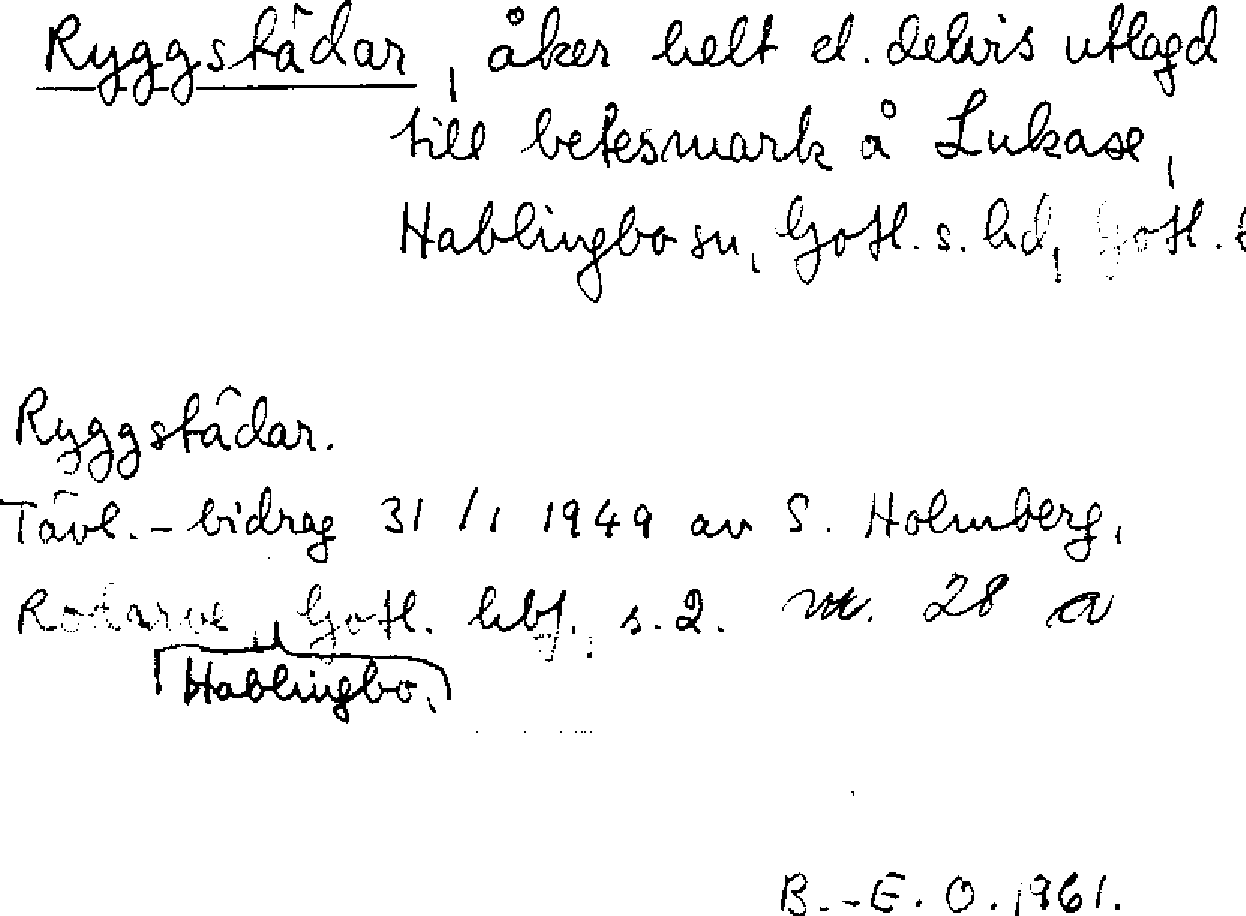 Ryggstâdar, åker helt el. delvis utlagd
till betesmark å Lukase,
Hablingbo sn, Gotl. s. hd, Gotl. l
Ryggstâdar.
Tävl.-bidrag 31/1 1949 av S. Holmberg,
Rodarve, Gotl. hbf. s.2. nr. 28 a
Hablingbo,
B.-E. O. 1961.